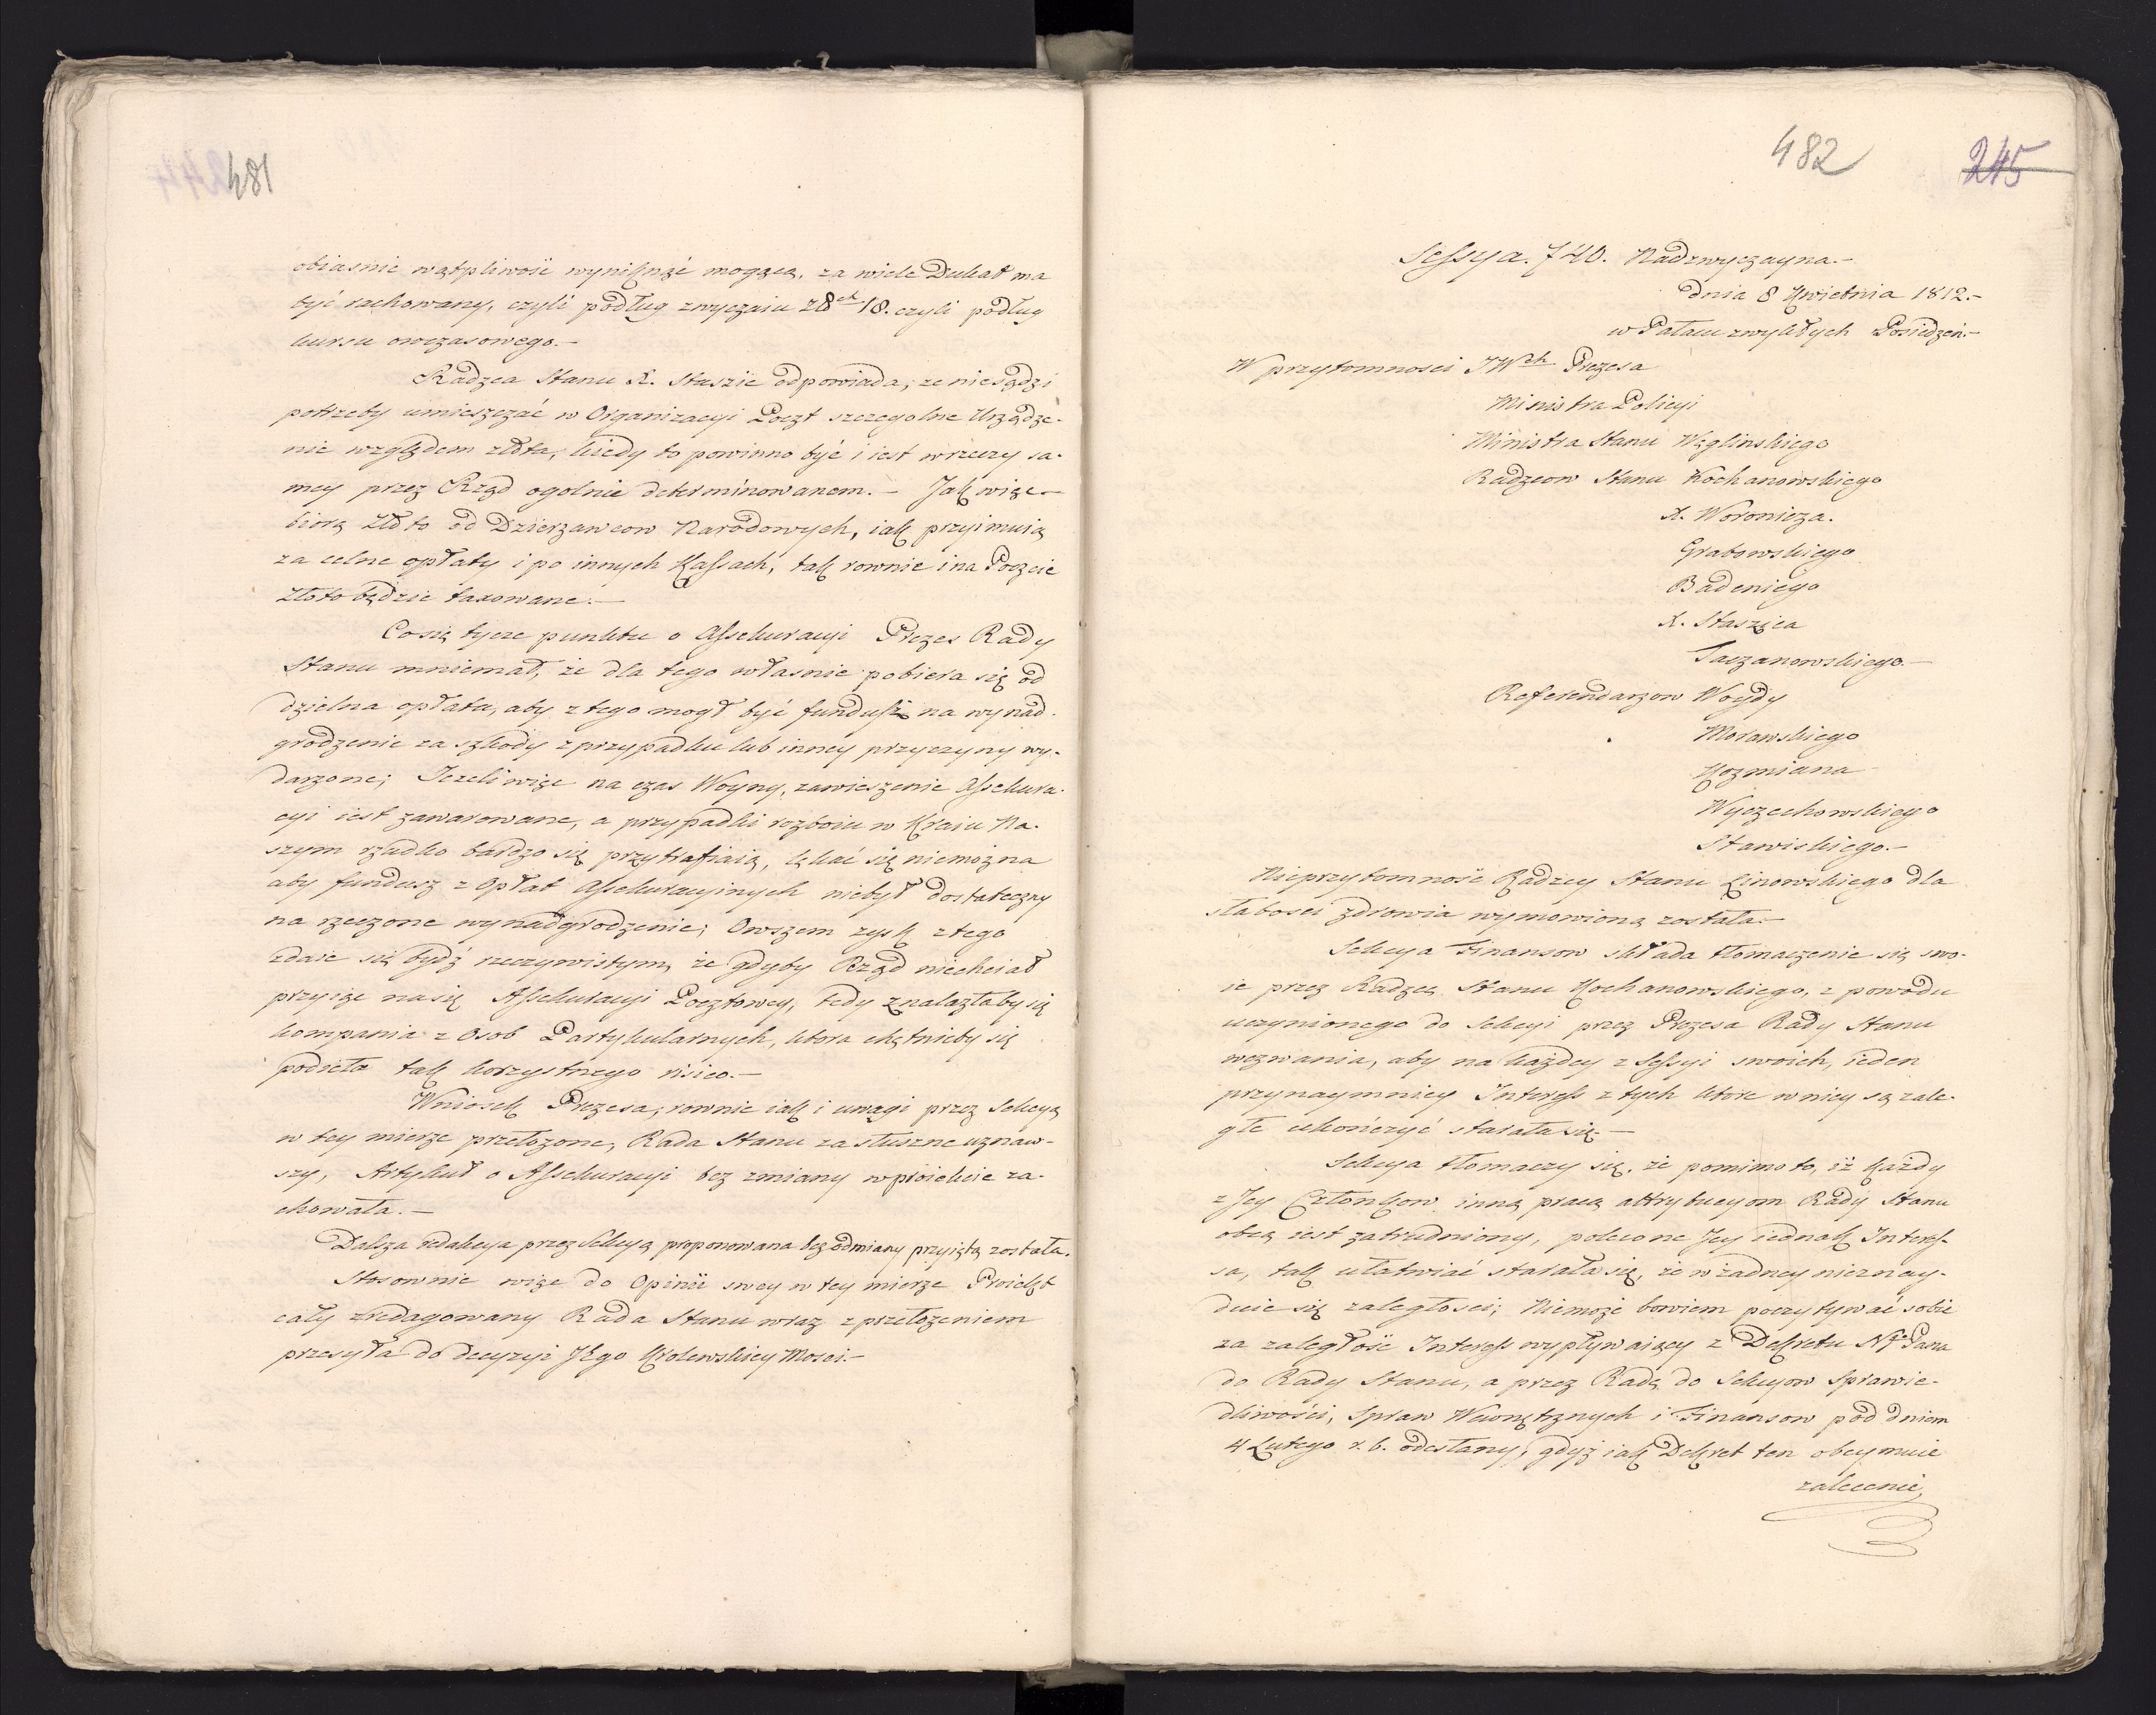 481
obiasnic wątpliwość wyniknąć mogącą, za wiele Dukat ma
być rachowany, czyli podług zwyczaiu zł^ch 18. czyli podług
kursu owczasowego.-
Radzca Stanu X. Staszic odpowiada, ze niesądzi
potrzeby umieszczać w Organizacyi Poczt szczegolne Urządze-
nie względem złota, kiedy to powinno być i iest wrzeczy sa-
mey przez Rząd ogolnie determinowanem.- Jak więc
biorą złoto od Dzierzawcow Narodowych, iak przyimuią
za celne opłaty i po innych Kassach, tak rownie i na Poczcie
złoto będzie taxowane.-
Co się tycze punktu o Assekuracyi Prezes Rady
Stanu mniemał, że dla tego własnie pobiera się od
dzielna opłata, aby z tego mogł być fundusz na wynad-
grodzenie za szkody z przypadku lub inney przyczyny wy-
darzone; Jezeli więc na czas Woyny, zawieszenie Assekura-
cyi iest zawarowane, a przypadki rozboiu w Kraiu Na-
szym rzadko bardzo się przytrafiaią, lękać się niemożna
aby fundusz z Opłat Assekuracyinych niebył dostateczny
na rzeczone wynadgrodzenie; Owszem zysk z tego
zdaie się bydź rzeczywistym, że gdyby Rząd niechciał
przyiąc na się Assekuracyi Pocztowey, tedy znalazłaby się
kompania z Osob Partykularnych, ktora chętnieby się
podieła tak korzystnego risico.-
Wniosek Prezesa, rownie iak i uwagi przez Sekcyą
w tey mierze przełozone, Rada Stanu za słuszne uznaw-
szy, Artykuł o Assekuracyi bez zmiany w proiekcie za-
chowała.-
Dalsza redakcya przez Sekcyą proponowana bez odmiany przyiętą została.
Stosownie więc do Opinii swey w tey mierze Proiekt
cały zredagowany Rada Stanu wraz z przełozeniem
przesyła do decyzyi JEgo Krolewskiey Mosci.-
482
245
Sessya. 740. Nadzwyczayna.-
Dnia 8 Kwietnia 1812.-
w Pałacu zwykłych Posiedzeń.-
W przytomnosci JW^ch Prezesa
Ministra Policyi
Ministra Stanu Węglinskiego
Radzcow Stanu Kochanowskiego
X. Woronicza.
Grabowskiego
Badeniego
X. Staszica
Taczanowskiego.-
Referendarzow Woydy
Morawskiego
Kozmiana
Wyczechowskiego
Stawiskiego.-
Nieprzytomność Radzcy Stanu Linowskiego dla
słabosci zdrowia wymowioną została.-
Sekcya Finansow składa tłomaczenie się swo-
ie przez Radzcę Stanu Kochanowskiego, z powodu
uczynionego do Sekcyi przez Prezesa Rady Stanu
wezwania, aby na każdey z Sessyi swoich, ieden
przynaymniey Interess z tych ktore w niey są zale-
głe ukończyć starała się.-
Sekcya tłomaczy się, że pomimo to, iż każdy
z Jey Członkow inną pracą attrybucyom Rady Stanu
obcą iest zatrudniony, polecone Jey iednak Interes-
sa, tak ułatwiać starała się, że w żadney nieznay-
duie się zaległosci; Niemoże bowiem poczytywać sobie
za zaległość Interess wypływaiący z Dekretu N^o Pana
do Rady Stanu, a przez Radę do Sekcyow Sprawie-
dliwości, Spraw Wewnętrznych i Finansow pod dniem
4 Lutego r. b. odesłany, gdyż iak Dekret ten obeymuie
zalecenie,